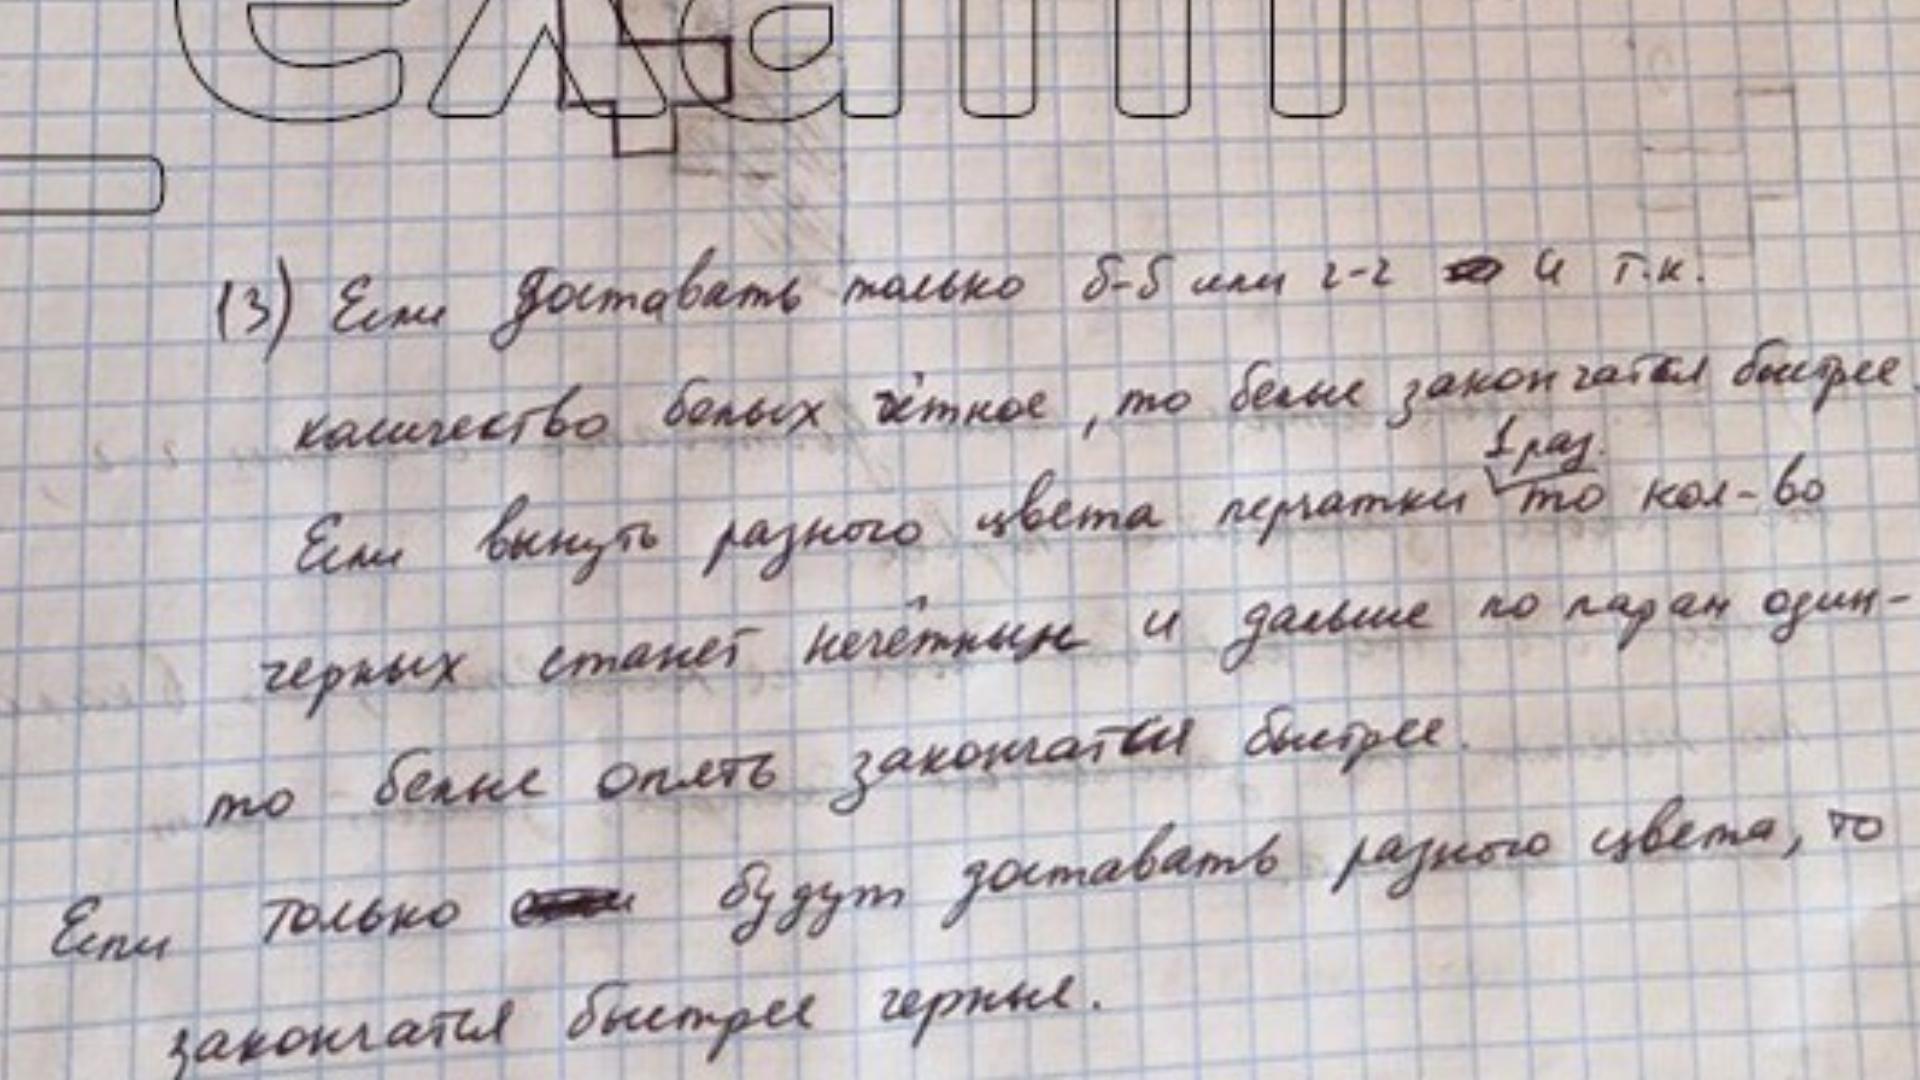 exam
(3) Если доставать только б-б или ч-ч и т.к.
количество белых чётное, то белые закончатся быстрее.
1 раз.
Если вынуть разного цвета перчатки то кол-во
черных станет нечётным и дальше по парам один-
то белые опять закончатся быстрее.
Если только будут доставать разного цвета, то
закончатся быстрее черные.